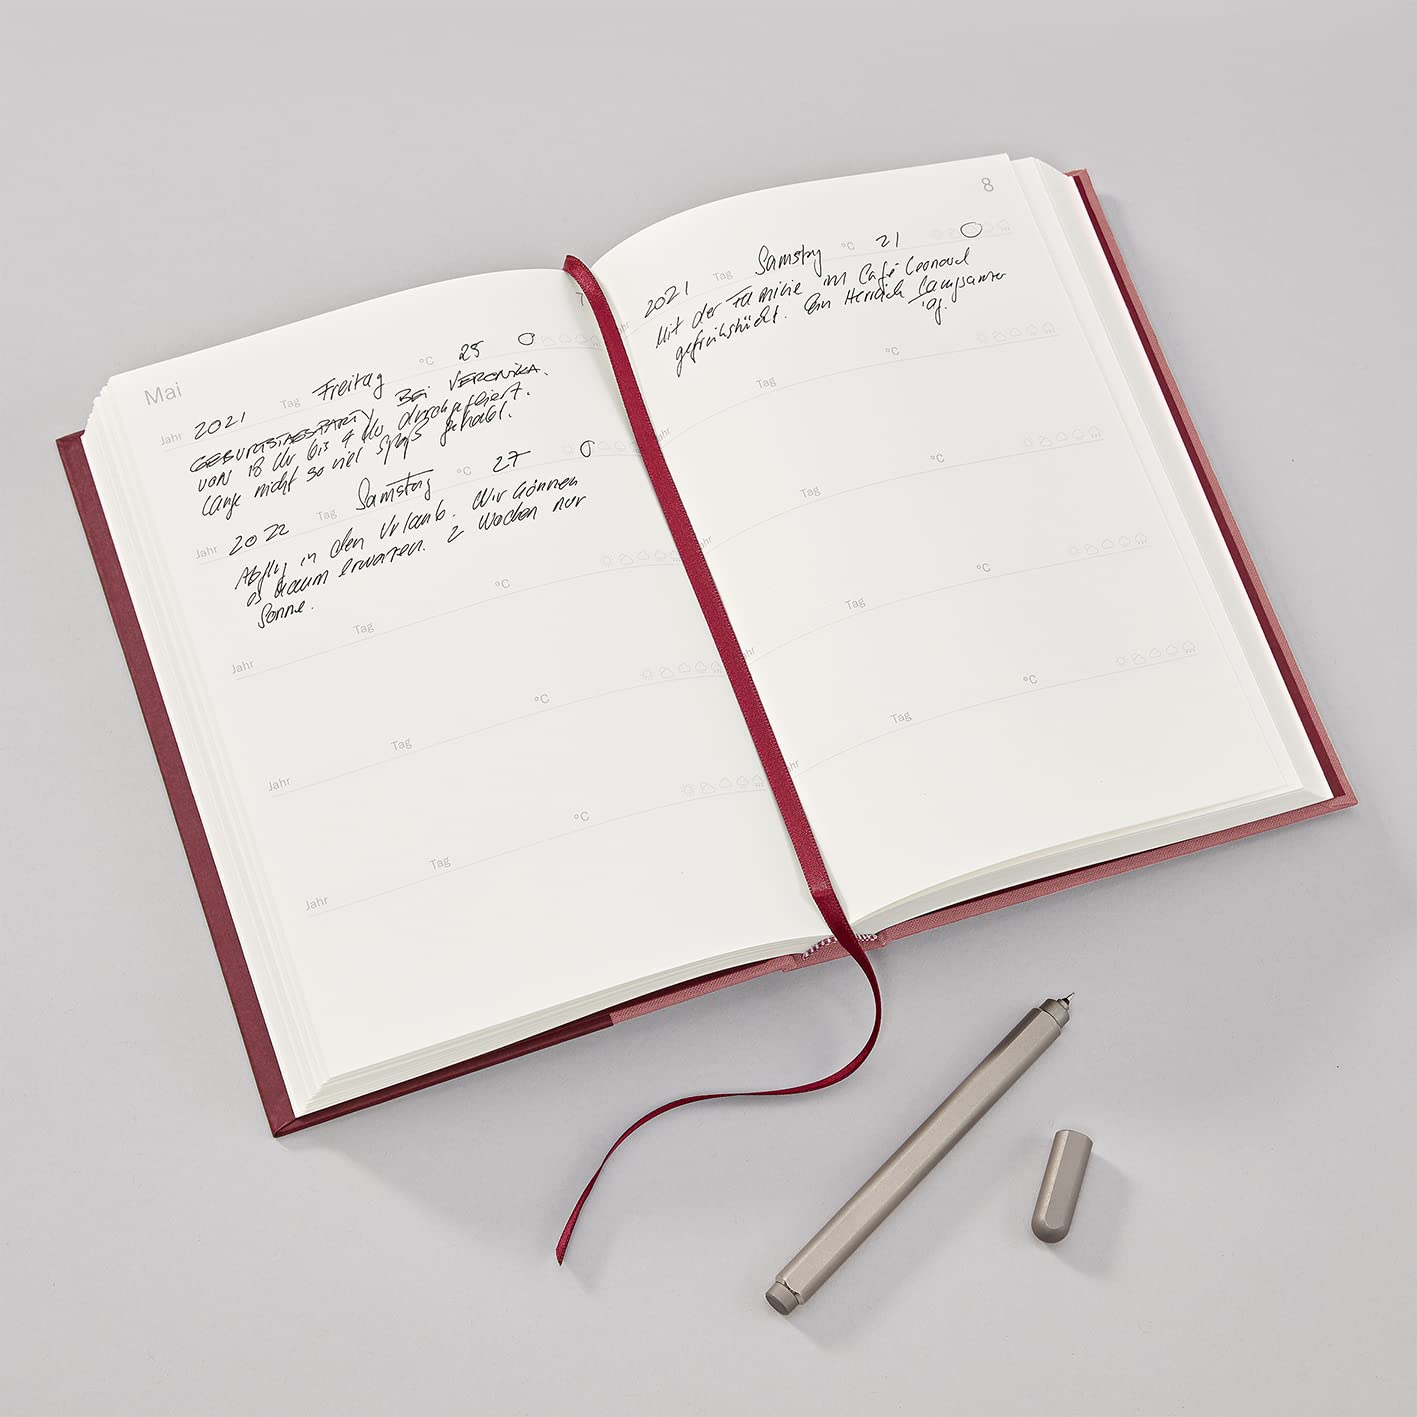 Mai
7
Jahr 2021 Tag Freitag °C 25
GEBURTSTAGSPARTY BEI VERONIKA.
VON 18 Uhr bis 4 Uhr durchgefeiert.
Lange nicht so viel Spaß gehabt.
Jahr 2022 Tag Samstag °C 27
Abflug in den Urlaub. Wir können
es kaum erwarten. 2 Wochen nur
Sonne.
Jahr Tag °C
Jahr Tag °C
Jahr Tag °C
8
2021 Tag Samstag °C 21
Mit der Familie im Café Leonard
gefrühstückt. Ein Herrlich langsamer
Tag.
Jahr Tag °C
Jahr Tag °C
Jahr Tag °C
Jahr Tag °C